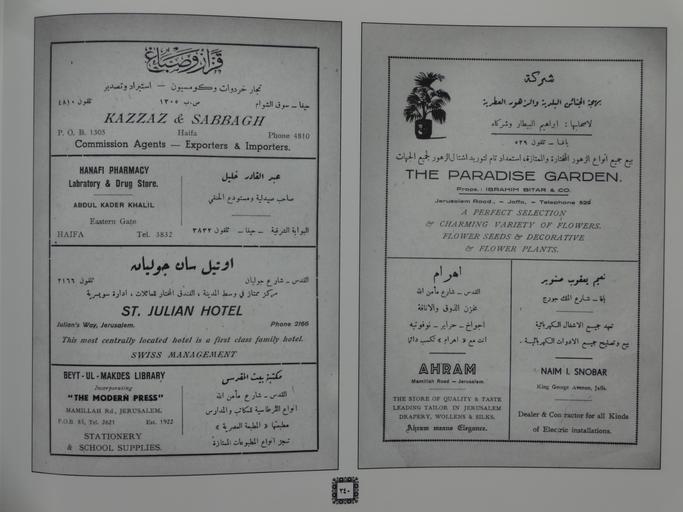 قزاز وصباغ
تجار خردوات وكومسيون — استيراد وتصدير
حيفا ــ سوق الشوام ص.ب ١٣٠٥ تلفون ٤٨١٠
KAZZAZ & SABBAGH
P. O. B. 1305 Haifa Phone 4810
Commission Agents — Exporters & Importers.
HANAFI PHARMACY
Labratory & Drug Store.
ABDUL KADER KHALIL
Eastern Gate
HAIFA Tel. 3832
عبد القادر خليل
صاحب صيدلية ومستودع الحنفي
البوابة الشرقية ــ حيفا ــ تلفون ٣٨٣٢
اوتيل سان جوليان
القدس ــ شارع جوليان تلفون ٢١٦٦
مركز ممتاز في وسط المدينة ، الفندق المختار للعائلات ، ادارة سويسرية
ST. JULIAN HOTEL
Julian's Way, Jerusalem. Phone 2166
This most centrally located hotel is a first class family hotel.
SWISS MANAGEMENT
BEYT-UL-MAKDES LIBRARY
Incorporating
"THE MODERN PRESS"
MAMILLAH Rd., JERUSALEM.
P.O.B. 85, Tel. 2621 Est. 1922
STATIONERY
& SCHOOL SUPPLIES.
مكتبة بيت المقدس
القدس ــ شارع مأمن الله
انواع القرطاسية للمكاتب والمدارس
مطبعتها « المطبعة العصرية »
تنجز انواع المطبوعات الممتازة
شركة
بهجة الجنائن البلدية والزهور العطرية
لاصحابها : ابراهيم البيطار وشركاه
يافا ــ تلفون ٥٢٩
بيع جميع أنواع الزهور المختارة والممتازة، استعداد تام لتوريد اشتال الزهور لجميع الجهات
THE PARADISE GARDEN.
Props.: IBRAHIM BITAR & CO.
Jerusalem Road., - Jaffa, - Telephone 529
A PERFECT SELECTION
& CHARMING VARIETY OF FLOWERS.
FLOWER SEEDS & DECORATIVE
& FLOWER PLANTS.
اهرام
القدس ــ شارع مأمن الله
مخزن الذوق والاناقة
اجواخ ــ حراير ــ نوفوتيه
انت مع « اهرام » تكسب دائما
AHRAM
Mamillah Road — Jerusalem.
THE STORE OF QUALITY & TASTE
LEADING TAILOR IN JERUSALEM
DRAPERY, WOLLENS & SILKS.
Ahram means Elegance.
نعيم يعقوب صنوبر
يافا ــ شارع الملك جورج
تعهد جميع الاشغال الكهربائية
بيع وتصليح جميع الادوات الكهربائية.
NAIM I. SNOBAR
King George Avenue, Jaffa.
Dealer & Con ractor for all Kinds
of Electric installations.
٣٤٠